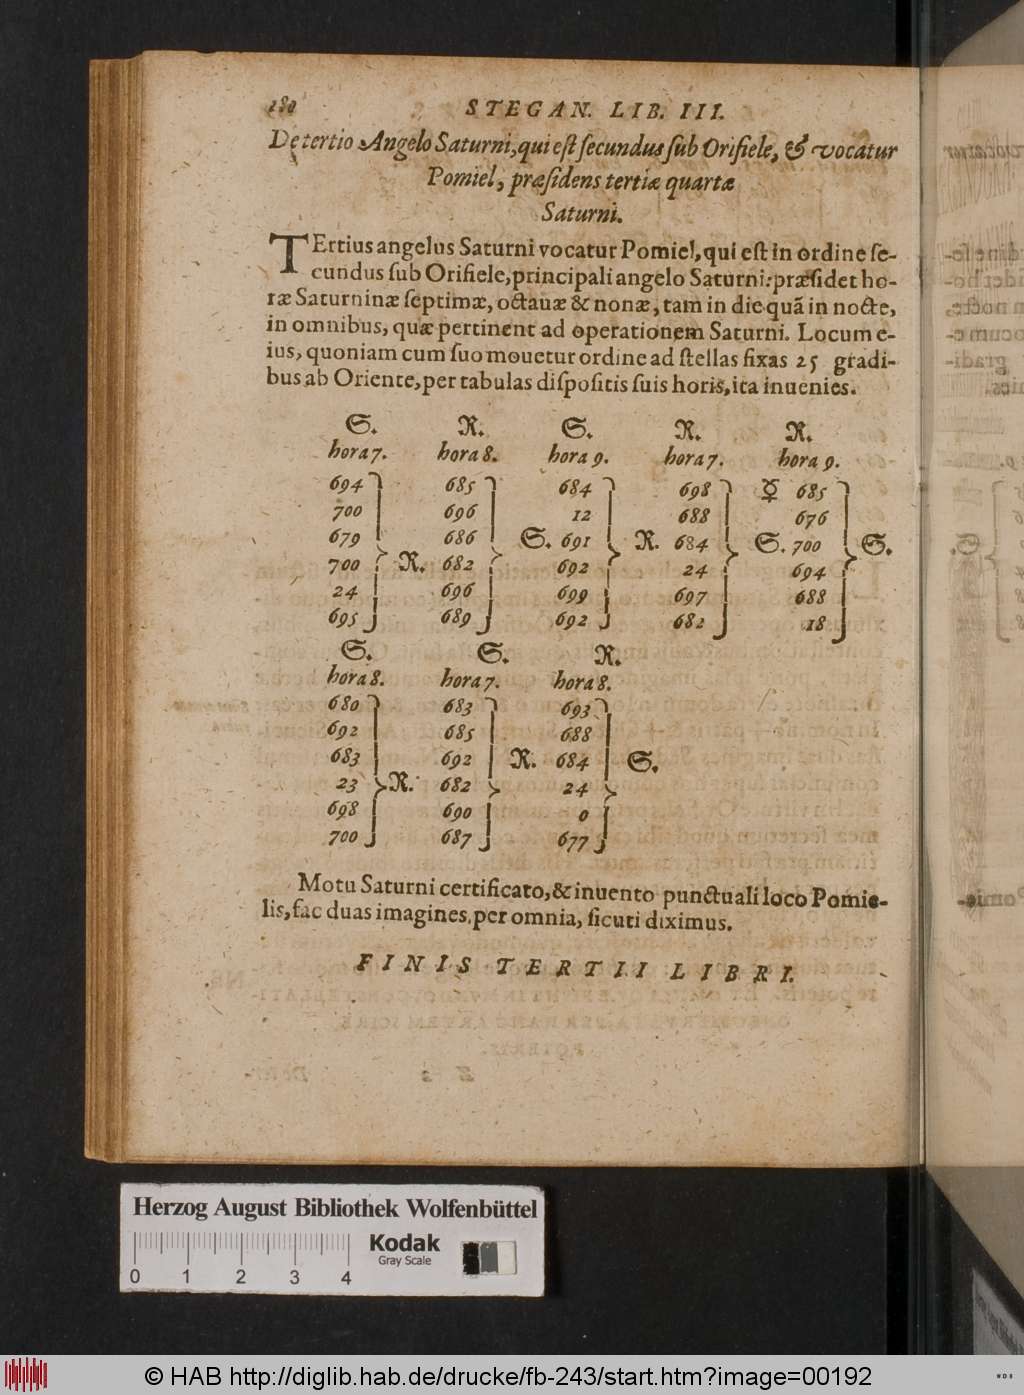 180 STEGAN. LIB. III.
De tertio Angelo Saturni, qui est secundus sub Orifiele, & vocatur
Pomiel, præsidens tertiæ quartæ
Saturni.
TErtius angelus Saturni vocatur Pomiel, qui est in ordine se-
cundus sub Orifiele, principali angelo Saturni: præsidet ho-
ræ Saturninæ septimæ, octauæ & nonæ, tam in die quã in nocte,
in omnibus, quæ pertinent ad operationem Saturni. Locum e-
ius, quoniam cum suo mouetur ordine ad stellas fixas 25 gradi-
bus ab Oriente, per tabulas dispositis suis horis, ita inuenies.
S. R. S. R. R.
hora 7. hora 8. hora 9. hora 7. hora 9.
694 685 684 698 ☿ 685
700 696 12 688 676
679 686 S. 691 R. 684 S. 700 S.
700 R. 682 692 24 694
24 696 699 697 688
695 689 692 682 18
S. S. R.
hora 8. hora 7. hora 8.
680 683 693
692 685 688
683 692 R. 684 S.
23 R. 682 24
698 690 0
700 687 677
Motu Saturni certificato, & inuento punctuali loco Pomie-
lis, fac duas imagines, per omnia, sicuti diximus.
FINIS TERTII LIBRI.
Herzog August Bibliothek Wolfenbüttel
Kodak
Gray Scale
0 1 2 3 4
© HAB http://diglib.hab.de/drucke/fb-243/start.htm?image=00192